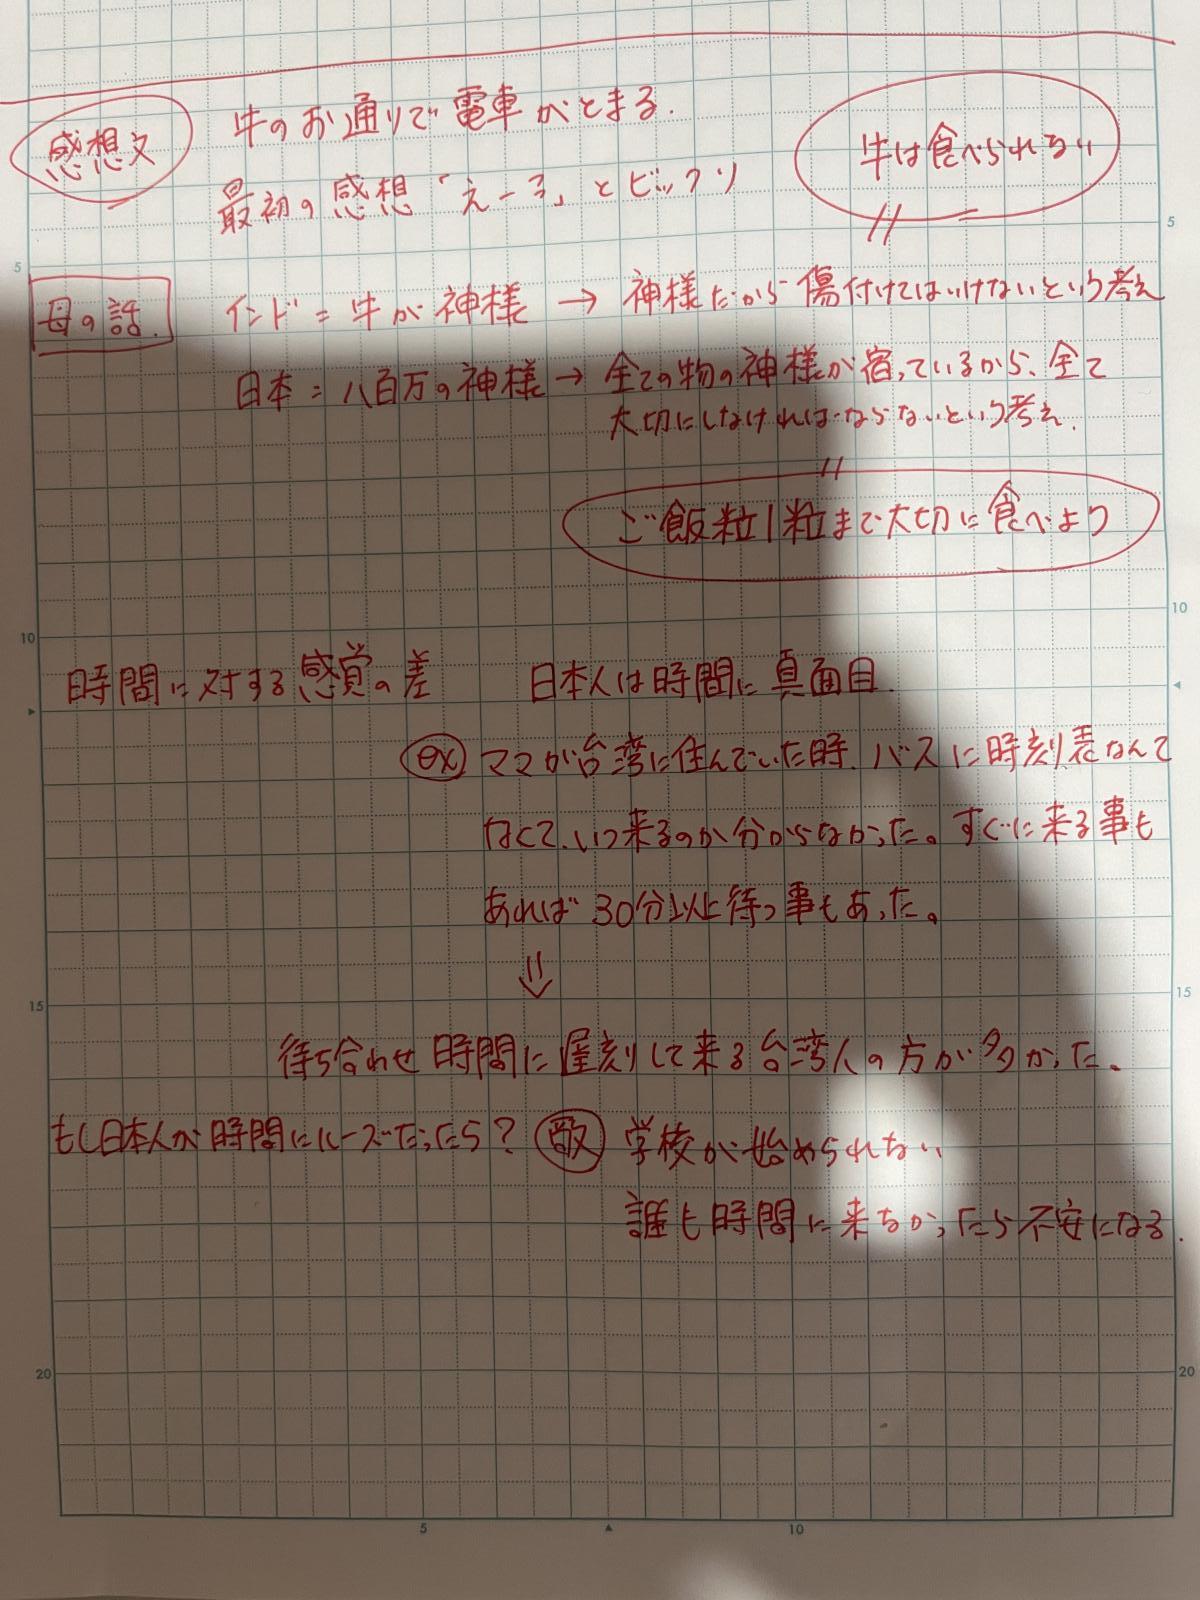 感想文
牛のお通りで電車がとまる.
最初の感想「えーろ」とビックリ
牛は食べられない
母の話.
インド = 牛が神様 → 神様だから傷付けてはいけないという考え
日本 = 八百万の神様 → 全ての物の神様が宿っているから、全て
大切にしなければならないという考え.
ご飯粒1粒まで大切に食べよう
時間に対する感覚の差 日本人は時間に真面目.
ex ママが台湾に住んでいた時、バスに時刻表なんて
なくて、いつ来るのか分からなかった。すぐに来る事も
あれば30分以上待つ事もあった。
⇓
待ち合わせ時間に遅刻して来る台湾人の方が多かった。
もし日本人が時間にルーズだったら? 敬 学校が始められない
誰も時間に来なかったら不安になる.
5
5
10
10
15
15
20
20
5
10